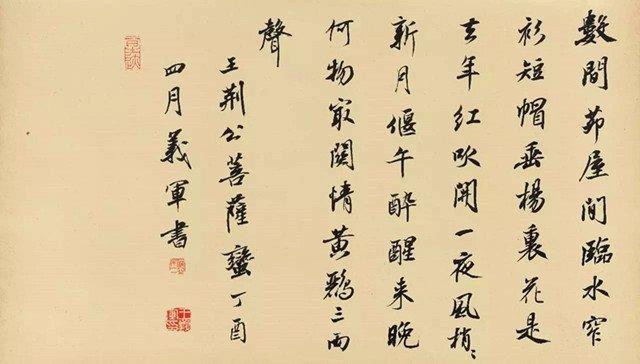 數間茆屋閒臨水窄
衫短帽垂楊裏花是
去年紅吹開一夜風梢〻
新月偃午醉醒來晚
何物最關情黃鸝三兩
聲
王荆公菩薩蠻丁酉
四月義軍書